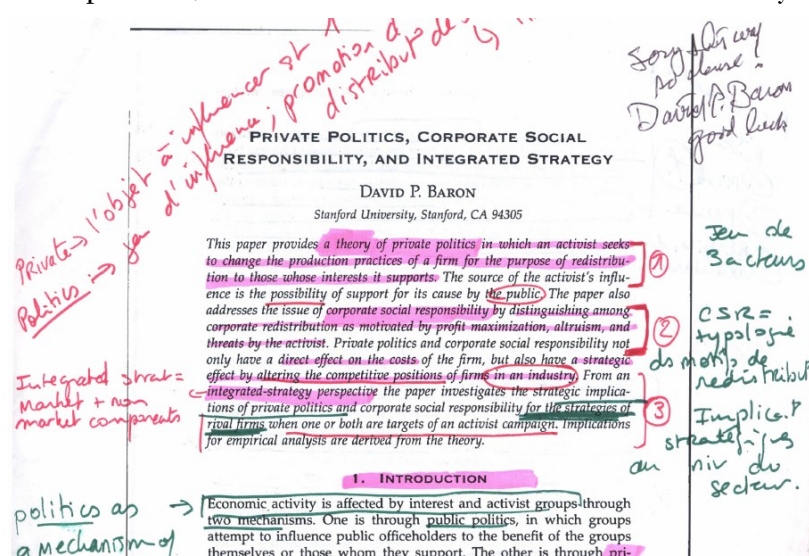 Private → l'objet à influencer est 1
Politics → jeu d'influence ; promotion d
distribut° de
David P. Baron
good luck
PRIVATE POLITICS, CORPORATE SOCIAL
RESPONSIBILITY, AND INTEGRATED STRATEGY
DAVID P. BARON
Stanford University, Stanford, CA 94305
This paper provides a theory of private politics in which an activist seeks
to change the production practices of a firm for the purpose of redistribu-
tion to those whose interests it supports. The source of the activist's influ-
ence is the possibility of support for its cause by the public. The paper also
addresses the issue of corporate social responsibility by distinguishing among
corporate redistribution as motivated by profit maximization, altruism, and
threats by the activist. Private politics and corporate social responsibility not
only have a direct effect on the costs of the firm, but also have a strategic
effect by altering the competitive positions of firms in an industry. From an
integrated-strategy perspective the paper investigates the strategic implica-
tions of private politics and corporate social responsibility for the strategies of
rival firms when one or both are targets of an activist campaign. Implications
for empirical analysis are derived from the theory.
1
2
3
Jeu de
3 acteurs
CSR =
typologie
ds motifs de
redistribut°
Implic.°
stratégiques
au niv du
secteur.
Integrated strat =
market + non
market components
1. INTRODUCTION
Economic activity is affected by interest and activist groups through
two mechanisms. One is through public politics, in which groups
attempt to influence public officeholders to the benefit of the groups
themselves or those whom they support. The other is through pri-
politics as →
a mechanism of